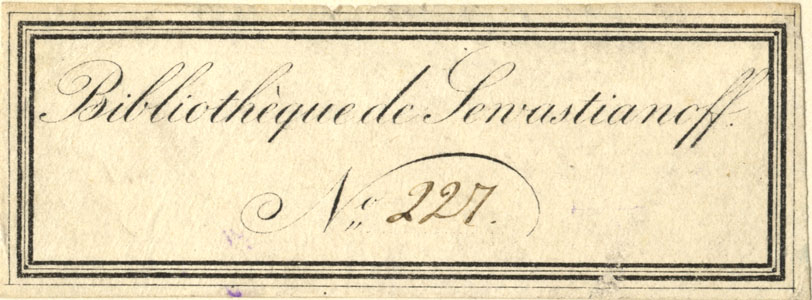 Bibliothèque de Sewastianoff.
No 227.